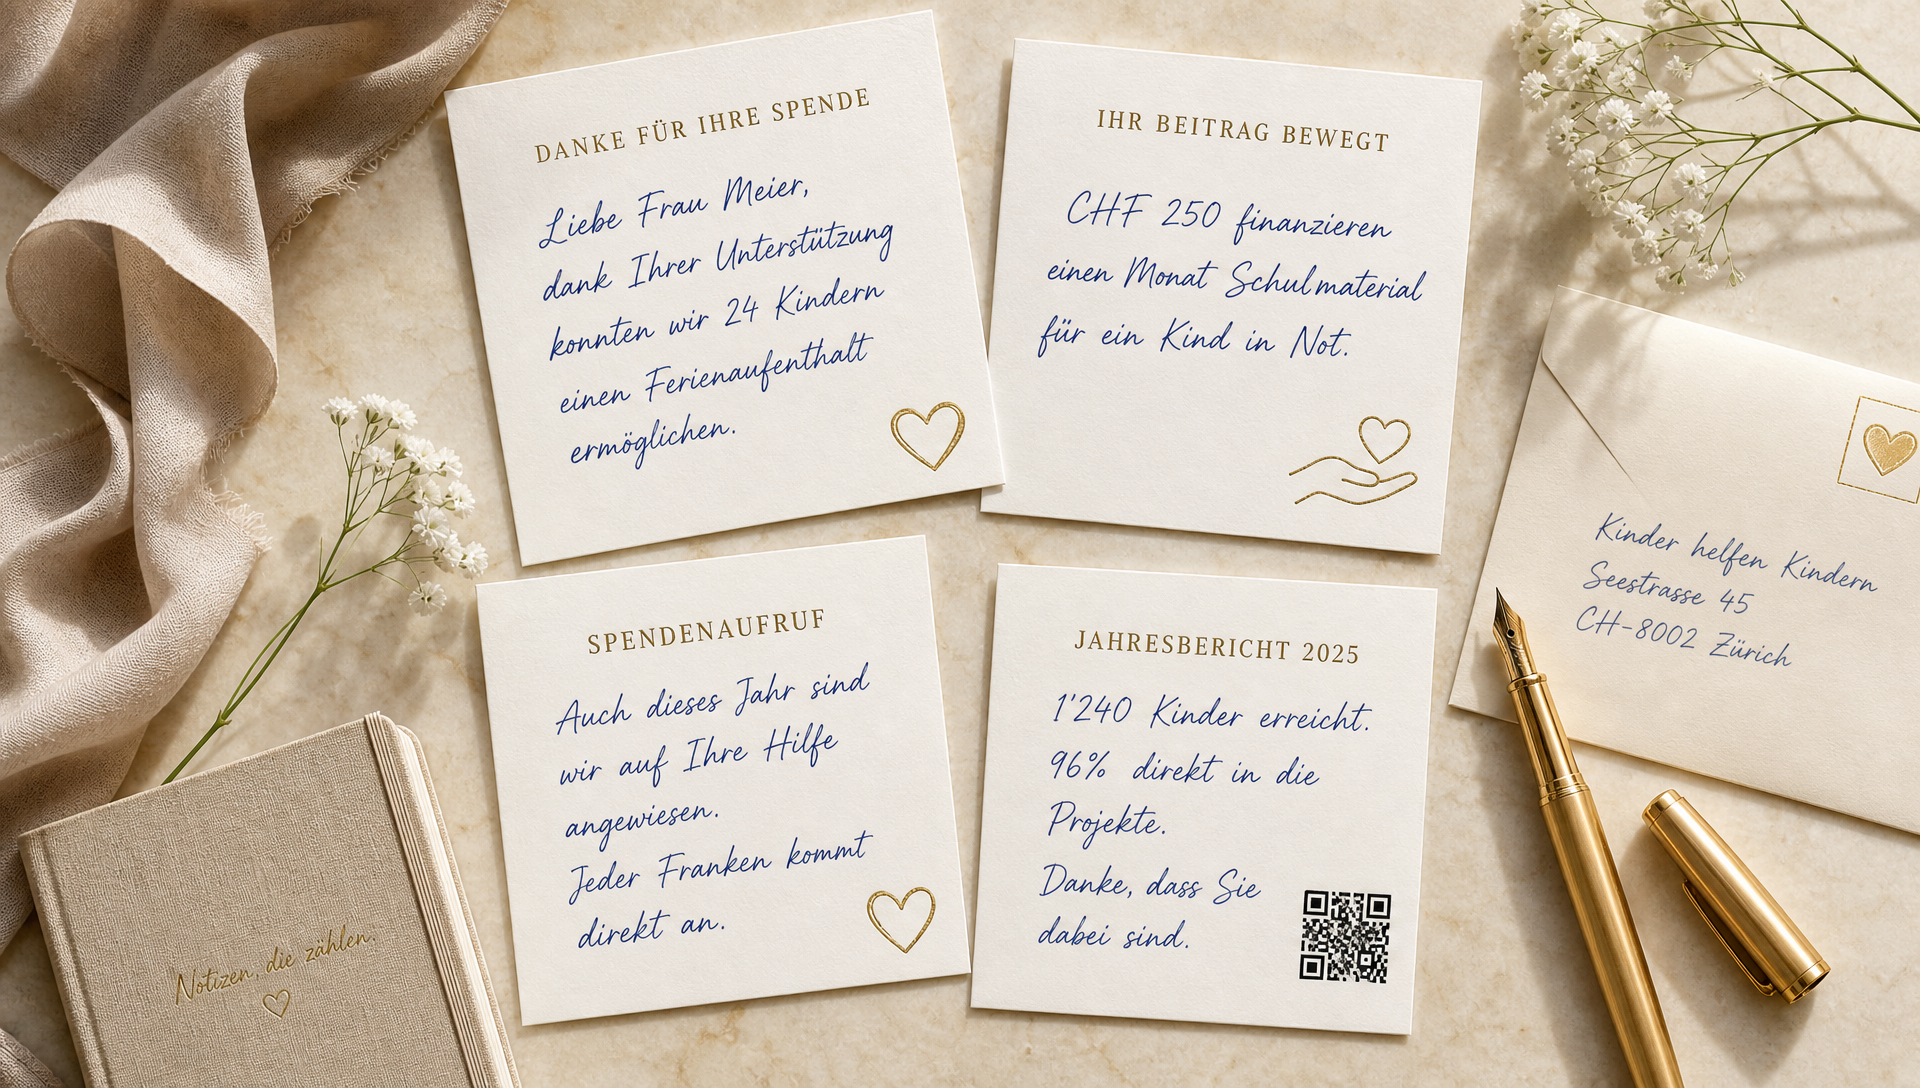 DANKE FÜR IHRE SPENDE
Liebe Frau Meier,
dank Ihrer Unterstützung
konnten wir 24 Kindern
einen Ferienaufenthalt
ermöglichen.
IHR BEITRAG BEWEGT
CHF 250 finanzieren
einen Monat Schulmaterial
für ein Kind in Not.
SPENDENAUFRUF
Auch dieses Jahr sind
wir auf Ihre Hilfe
angewiesen.
Jeder Franken kommt
direkt an.
JAHRESBERICHT 2025
1'240 Kinder erreicht.
96% direkt in die
Projekte.
Danke, dass Sie
dabei sind.
Kinder helfen Kindern
Seestrasse 45
CH-8002 Zürich
Notizen, die zählen.